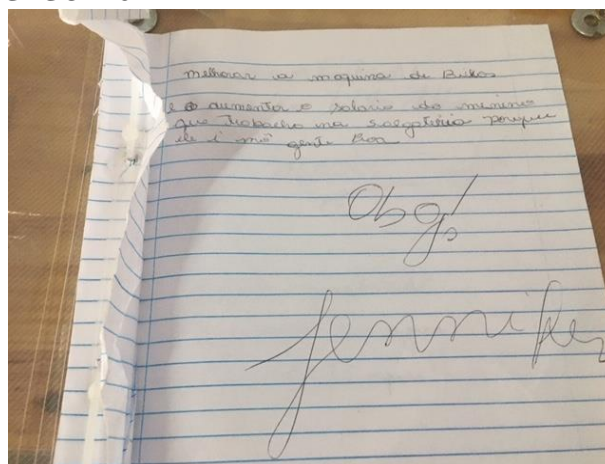 melhorar a maquina de Bixos
e aumenta o salario do menino
que trabacha na salgateria porque
ele é mó gente Boa
Obg!
Jennifer